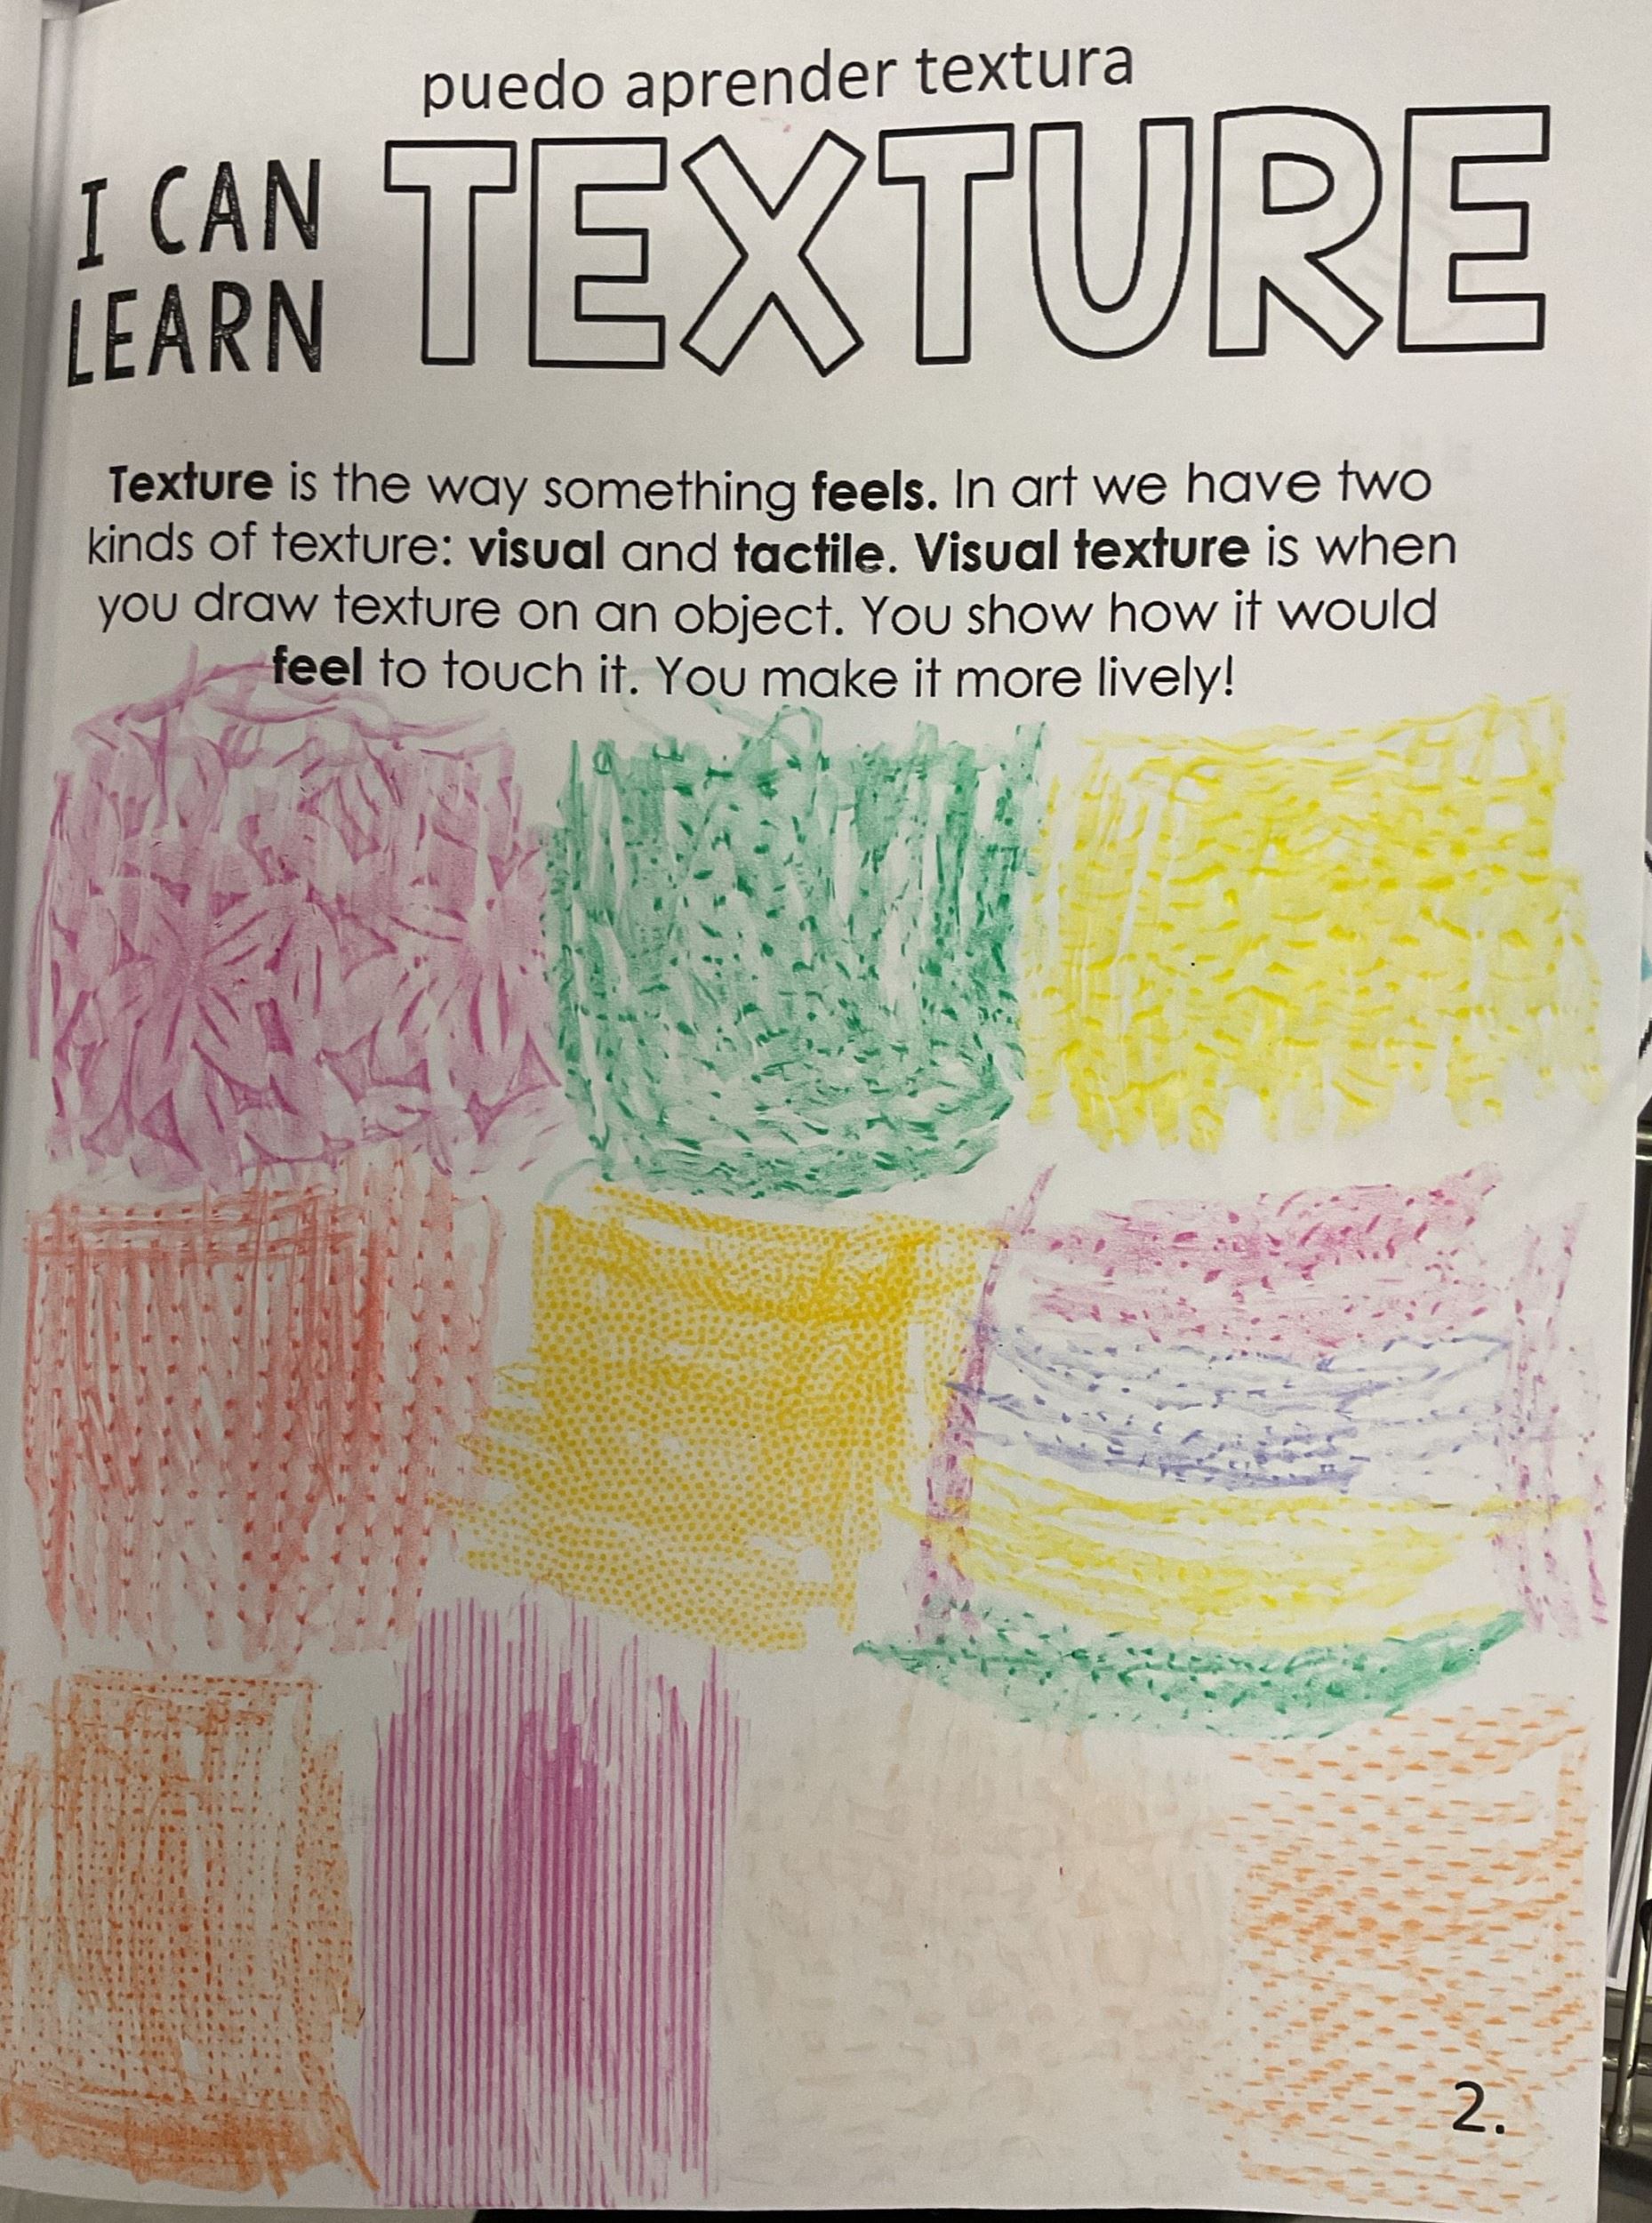 puedo aprender textura
I CAN
LEARN
TEXTURE
Texture is the way something feels. In art we have two
kinds of texture: visual and tactile. Visual texture is when
you draw texture on an object. You show how it would
feel to touch it. You make it more lively!
2.